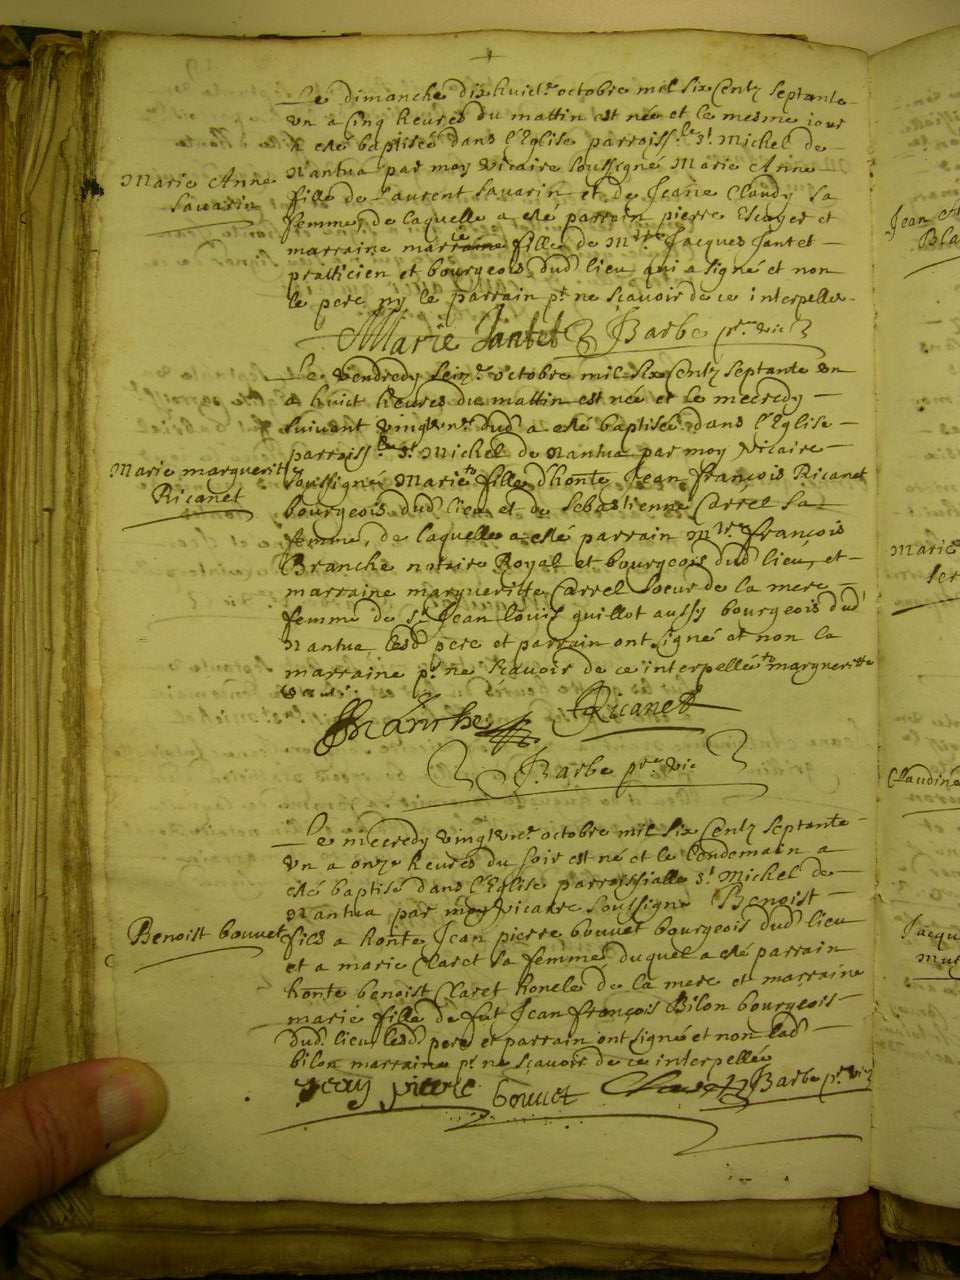 Le dimanche dix huict.e octobre mil six Centz septante
vn a Cinq heures du mattin est née et le mesme iour
a esté baptisée dans l'Eglise parroiss.le S.t Michel de
Nantua par moy vicaire soussigné Marie Anne
Marie Anne
Savarin
fille de Laurent Savarin et de Jeane Claudy sa
femme, de laquelle a esté parrain pierre et
marraine marie fille de M.tre Jacques Jantet
pratticien et bourgeois dud. lieu qui a signé et non
le pere ny le parrain p.r ne sçavoir de ce interpellés
Marie Jantet Barbe p.re vic
Le Vendredy seiz.e octobre mil six Centz septante vn
a huict heures du mattin est née et le mecredy
suivant vingtvn.e dud. a esté baptisée dans l'Eglise
parroiss.le S.t Michel de Nantua par moy vicaire
Marie marguerite
Ricanet
soussigné Marie fille d'honte Jean françois Ricanet
bourgeois dud. lieu et de Sebastienne Carrel sa
femme, de laquelle a esté parrain M.tre françois
Branche notaire Royal et bourgeois dud. lieu, et
marraine margueritte Carrel soeur de la mere
femme de S.r Jean Louis guillot aussy bourgeois dud.
Nantua lesd. pere et parrain ont signé et non la
marraine p.r ne sçavoir de ce interpellée margueritte
Branche Ricanet
Barbe p.re vic
Le mecredy vingtvn.e octobre mil six Centz septante
vn a onze heures du soir est né et le lendemain a
esté baptisé dans l'Eglise parroissialle S.t Michel de
Nantua par moy vicaire soussigné Benoist
Benoist bouvet
fils a honte Jean pierre bouvet bourgeois dud. lieu
et a marie Claret sa femme duquel a esté parrain
honte benoist Claret de la mere et marraine
marie fille de fut Jean françois Bilon bourgeois
dud. lieu lesd. pere et parrain ont signé et non lad.
bilon marraine p.r ne sçavoir de ce interpellée
Jean pierre bouvet Claret Barbe p.re vic